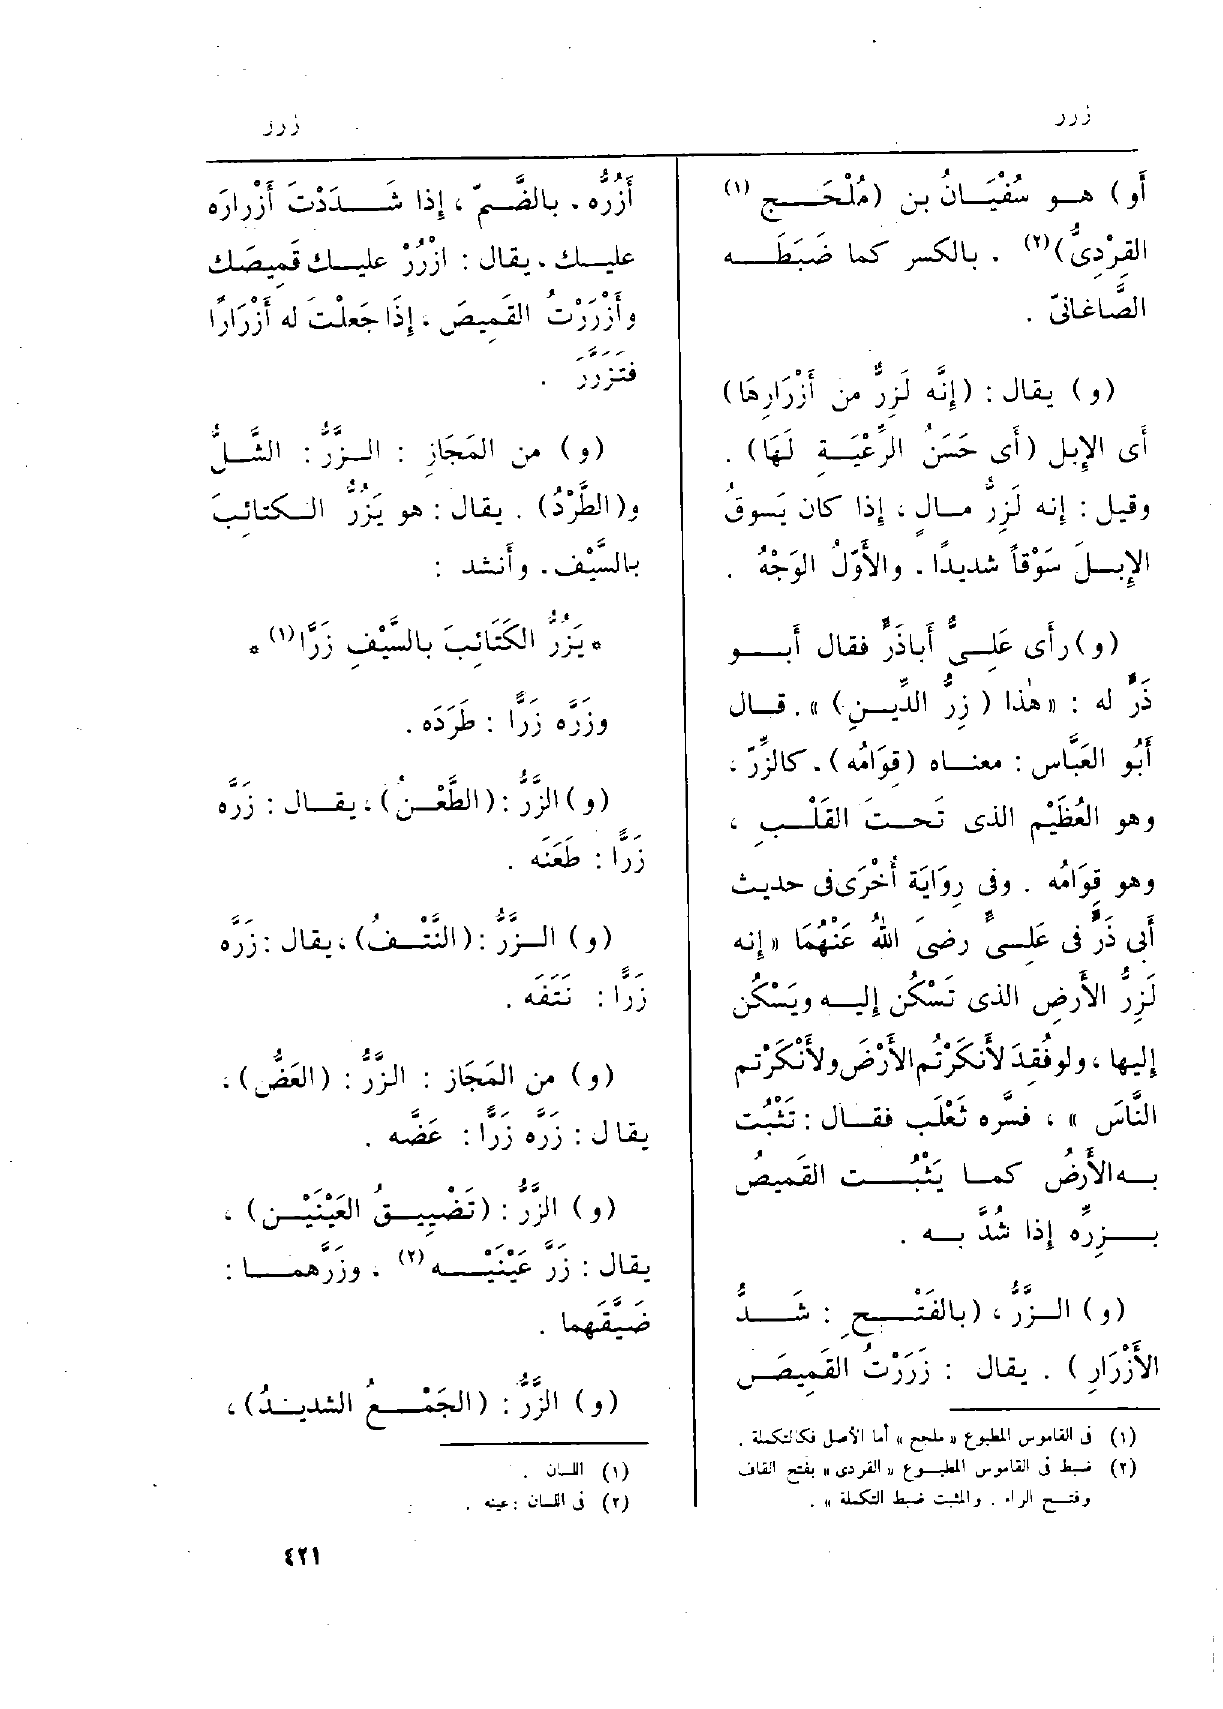 زرر
زرر
أو) هو سُفْيَانُ بن (مُلْحَج (١)
القِرْدِىُّ)(٢) . بالكسر كما ضَبَطَه
الصَّاغانىّ .
(و) يقال : (إنَّه لَزِرٌّ من أَزْرَارِهَا)
أى الإبل (أى حَسَنُ الرِّعْيَة لَهَا) .
وقيل : إنه لَزِرُّ مالٍ ، إذا كان يَسوقُ
الإبلَ سَوْقاً شديدًا . والأوّلُ الوَجْهُ .
(و) رأى عَلىٌّ أباذَرٍّ فقال أبو
ذَرٍّ له : «هٰذا ( زِرُّ الدِّين) » . قال
أَبُو العَبَّاس : معناه (قِوَامُه) . كالزِّرّ ،
وهو العُظَيْم الذى تَحتَ القَلْبِ ،
وهو قِوَامُه . وفى رِوَايَة أُخْرَى فى حديث
أبى ذَرٍّ فى عَلِىٍّ رضىَ اللهُ عَنْهُمَا «إنه
لَزِرُّ الأَرضِ الذى تَسْكُن إليه ويَسْكُن
إليها ، ولو فُقِدَ لأَنكَرْتُم الأَرْضَ ولأَنْكَرْتم
النَّاسَ » ، فسَّره ثَعْلَب فقال : تَثْبُت
به الأَرضُ كما يَثْبُت القَميصُ
بزِرِّه إذا شُدَّ به .
(و) الزَّرُّ ، (بالفَتْح : شَدُّ
الأَزْرَارِ ) . يقال : زَرَرْتُ القَمِيصَ
(١) فى القاموس المطبوع « ملجح » أما الأصل فكالتكملة .
(٢) ضبط فى القاموس المطبوع « القردى » بفتح القاف
وفتح الراء . والمثبت ضبط التكملة » .
أَزُرُّه . بالضَّمّ ، إذا شَدَدْتَ أَزْرارَه
عليك . يقال : ازْرُرْ عليك قَمِيصَك
وأَزْرَرْتُ القَمِيصَ ، إِذَا جَعلْتَ له أَزْرَارًا
فتَزَرَّرَ .
(و) من المَجَازِ : الزَّرُّ : الشَّلُّ
و(الطَّرْدُ) . يقال : هو يَزُرُّ الكتائِبَ
بالسَّيْف . وأنشد :
* يَزُرُّ الكَتَائِبَ بالسَّيْفِ زَرًّا(١) *
وزَرَّه زَرًّا : طَرَدَه .
(و) الزَّرُّ : (الطَّعْنُ) ، يقال : زَرَّه
زَرًّا : طَعَنَه .
(و) الزَّرُّ : (النَّتْفُ) ، يقال : زَرَّه
زَرًّا : نَتَفَه .
(و) من المَجَاز : الزَّرُّ : (العَضُّ) ،
يقال : زَرَّه زَرًّا : عَضَّه .
(و) الزَّرُّ : (تَضْيِيقُ العَيْنَيْن) ،
يقال : زَرَّ عَيْنَيْه(٢) . وزَرَّهما :
ضَيَّقَهما .
(و) الزَّرُّ : (الجَمْعُ الشديدُ) ،
(١) اللسان .
(٢) فى اللسان : عينه .
٤٢١